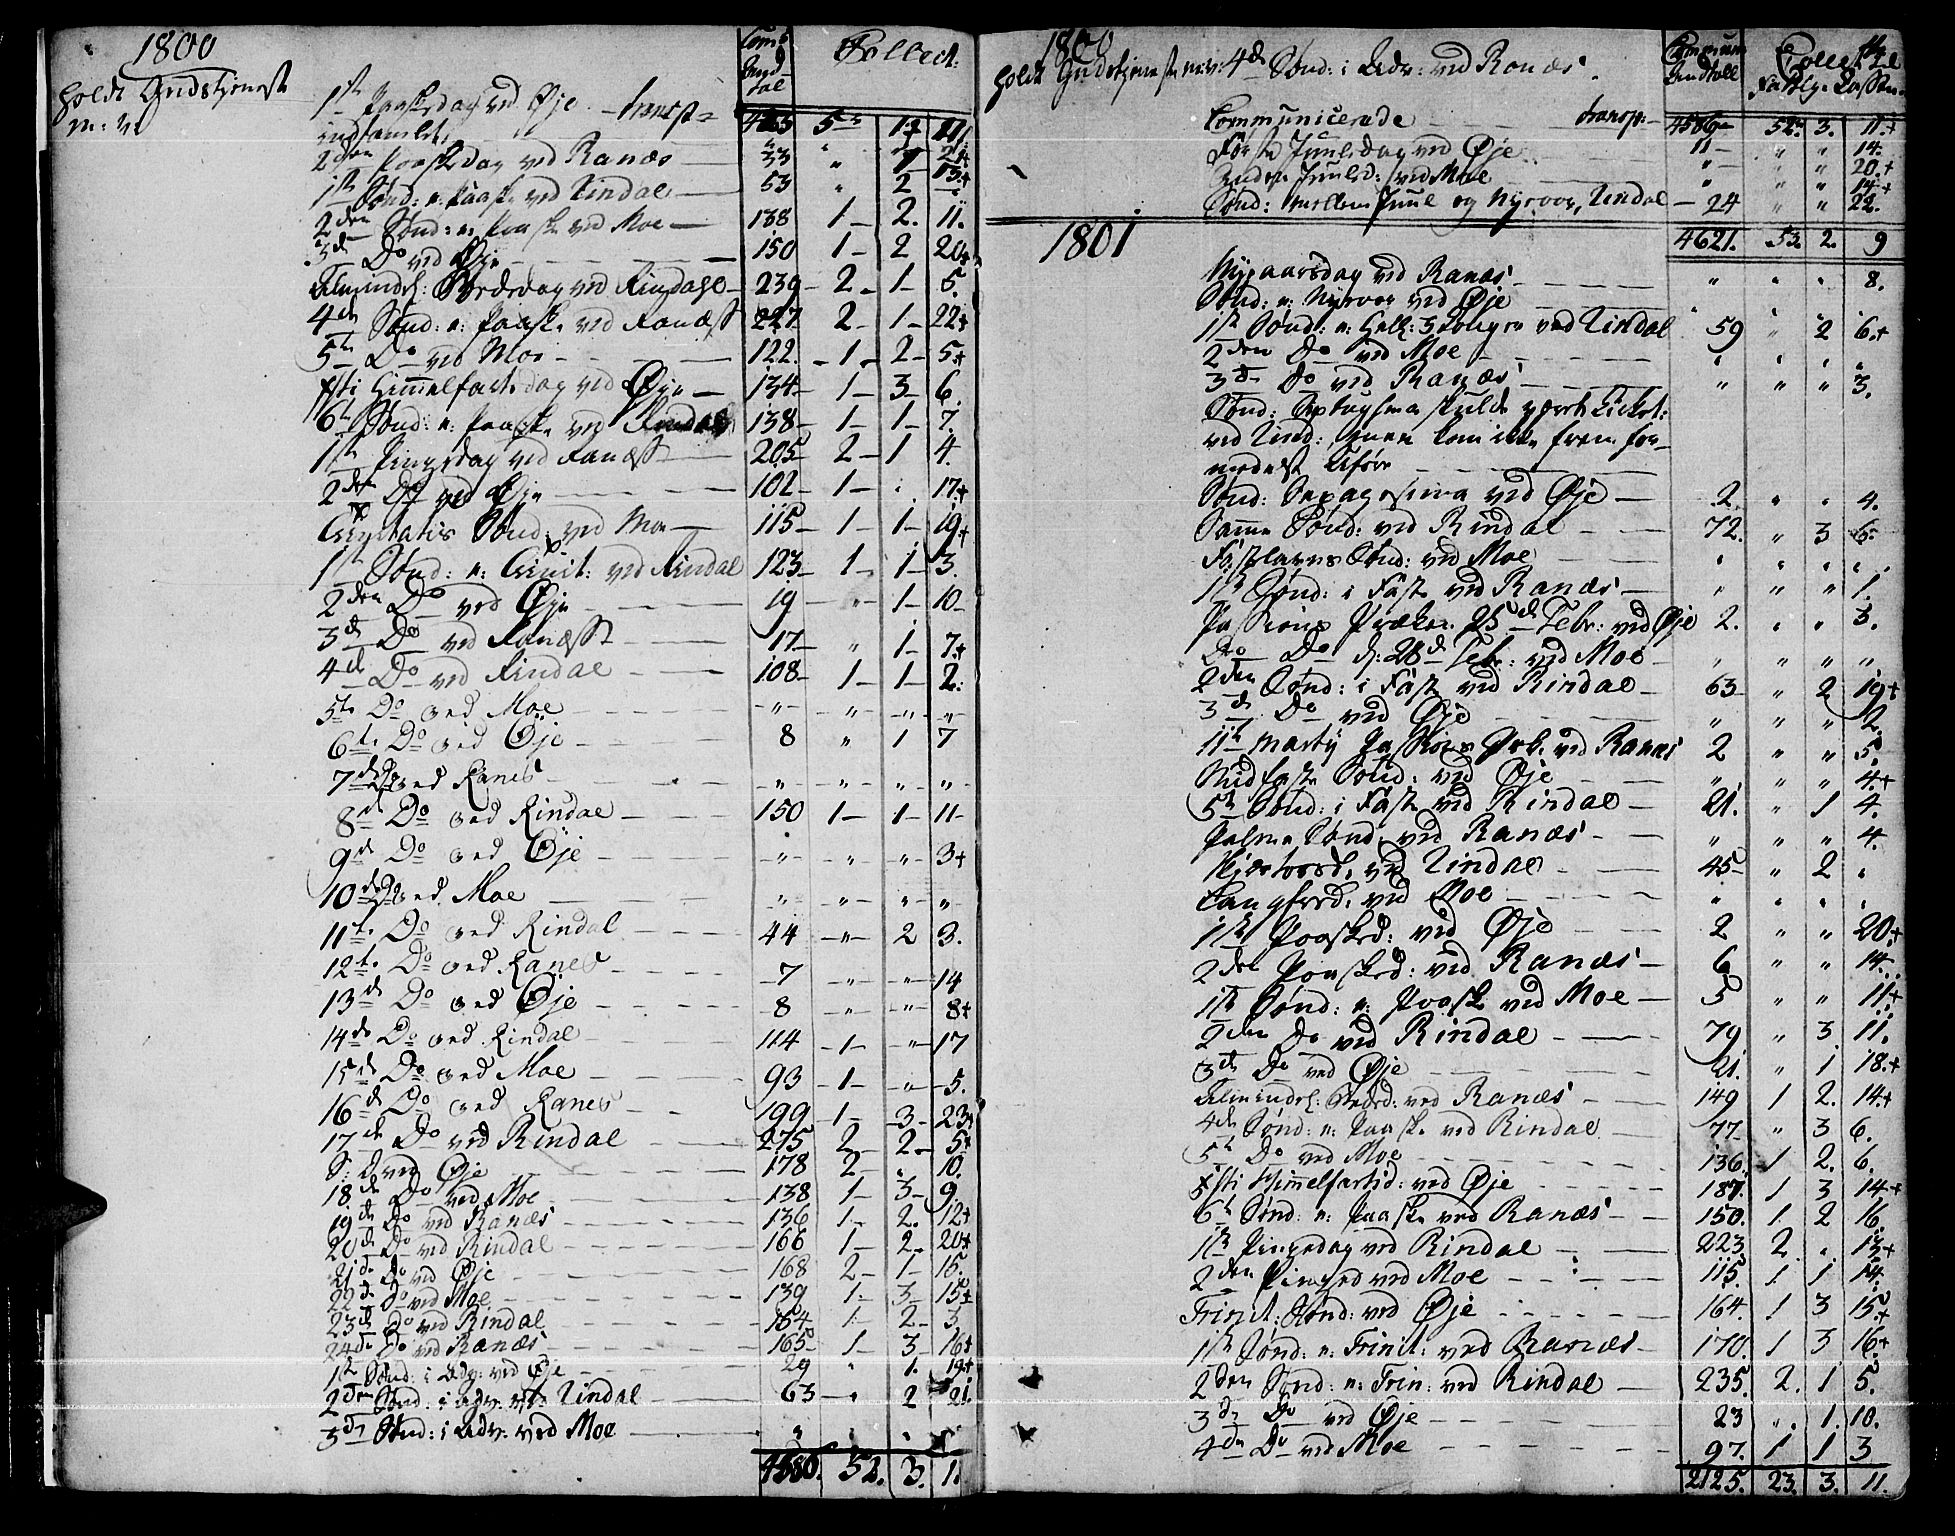 1800
holdt Gudstjeneste
m: v:
Com: Andtal Collect:
1ste Paaskedag ved Øje transp 5 17
indsamlet
2den Paaskedag ved Ranæs 33 " 1 21+
1ste Sønd: e: Paaske ved Rindal 53 " 2 13+
2den Sønd: e: Paaske ved Moe 138 1 2. 11.
3de Do ved Øje 150 1 2 20+
Almindel: Bededag ved Rindahl 239 2 1 5.
4de Sønd: e: Paaske ved Ranæss 227 2 1 22+
5te Do ved Moe 122. 1 2 5+
Xsti Himmelfartsdag ved Øje 134 1 3 6.
6te Sønd: e: Paaske ved Rindal 138 1 1 7.
1ste Pinsedag ved Ranæss 205 2 1 4.
2den Do ved Øje 102 1 " 17+
Trinitatis Sønd: ved Moe 115 1 1 19+
1ste Sønd: e: Trinit: ved Rindal 123 1 1 3.
2den Do ved Øje 19 " 1 10
3de Do ved Ranæss 17 " 1 7+
4de Do ved Rindal 108 1 1 2:
5te Do ved Moe " " " "
6te Do ved Øje 8 " 1 7
7de Do ved Ranes " " " "
8de Do ved Rindal 150 1 1 11
9de Do ved Øje " " " 3+
10de Do ved Moe " " " "
11te Do ved Rindal 44 " 2 3.
12te Do ved Ranes 7 " " 14
13de Do ved Øje 8 " " 8+
14de Do ved Rindal 114 1 " 17
15de Do ved Moe 93 1 " 5.
16de Do ved Ranes 199 1 3 23+
17de Do ved Rindal 275 2 2 5+
S: D ved Øje 178 2 " 10.
18de Do ved Moe 138 1 3 9.
19de Do ved Ranæs 136 1 2. 12+
20de Do ved Rindal 166 1 2. 20+
21de Do ved Øje 168 2 1 15.
22de Do ved Moe 139 1 3 15+
23de Do ved Rindal 164 1 2 3
24de Do ved Ranæs 165 1 3 16+
1ste Sønd: i Adv: ved Øje 29 " 1. 19+
2den Sønd: i Adv: ved Rindal 63 " 2 21.
3de Sønd: i Adv: ved Moe " " " "
4580. 52. 3. 1.
1800
holdt Gudstjeneste m: v: 4de Sønd: i Adv: ved Ranæs.
Communi Andtall Collecter
Communicerede transp: 4586 52. 3. 11+
Første Juuledag ved Øje 11 " " 14.
Anden Juuled: ved Moe " " " 20.+
" " " 14+
Sønd: mellem Juul og Nyeaar, Rindal 24 " " 22.
1801 4621. 53. 2. 9
Nyeaarsdag ved Ranæs " " " 8.
Sønd: e: Nyeaar ved Øje
1ste Sønd: e: Hell: 3 Konger ved Rindal 59 " 2 6+
2den Do ved Moe " " " "
3de Do ved Ranæs " " " 3.
Sønd: Septuagesima skulde været
ved Rind: men kom ikke frem for-
medelst Uføre
Sønd: Sexagesima ved Øje 2. " " 4.
Samme Sønd: ved Rindal 72. " 3 6.
Fastelavns Sønd: ved Moe " " " "
1ste Sønd: i Faste ved Ranæs " " " 1.
Passions Præken 25de Febr: ved Øje 2. " " 3.
Do Do d: 28de Febr: ved Moe " " " "
2den Sønd: i Faste ved Rindal 63 " 2 19+
3de Do ved Øje " " " 2.
11te Martÿ Passions ved Ranæs 2 " " 5.
Midfaste Sønd: ved Øje " " " 4.+
5te Sønd: i Faste ved Rindal 21. " 1 4.
Palme Sønd: ved Ranæs " " " 4.
Skjertorsd: ved Rindal 45 " 2 "
Langfred: ved Moe " " " "
1ste Paasked: ved Øje 2 " " 20+
2den Paasked: ved Ranæs 6 " " 14.
1ste Sønd: e: Paaske ved Moe 5 " " 11+
2den Do ved Rindal 79 " 3 11.
3de Do ved Øje 21. " 1 18.+
Almindel: Beded: ved Ranæs 149 1 2. 14.+
4de Sønd: e: Paaske ved Rindal 77 " 3 6.
5te Do ved Moe 136 1 2. 6.
Xsti Himmelfartsd: ved Øje 187. 1 3 14+
6te Sønd: e: Paaske ved Ranæs 150. 1 2 16.
1ste Pingsdag ved Rindal 223. 2 " 13+
2den Pingsd ved Moe 115. 1 1 14.
Trinit: Sønd: ved Øje 164. 1 3 15+
1ste Sønd: e: Trinit: ved Ranæs 170. 1 3 16+
2den Sønd: e: Trin: ved Rindal 235. 2. 1 5.
3de Do ved Øje 23 " 1. 10.
4de Do ved Moe 97. 1 1 3
2125. 23. 3. 11.